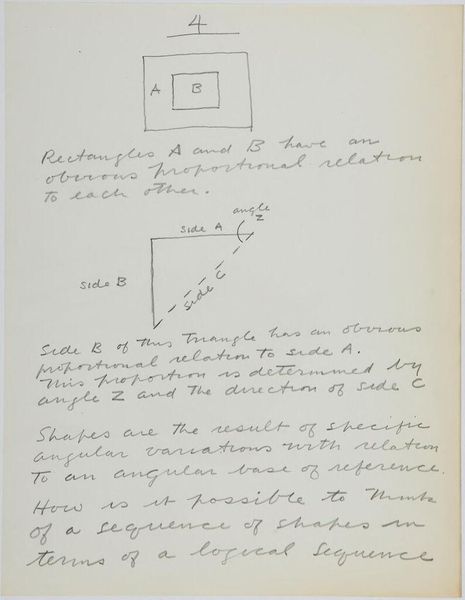 4
A
B
Rectangles A and B have an
obvious proportional relation
to each other.
angle
Z
side A
side B
side C
Side B of this triangle has an obvious
proportional relation to side A.
This proportion is determined by
angle Z and the direction of side C
Shapes are the result of specific
angular variations with relation
to an angular base of reference.
How is it possible to think
of a sequence of shapes in
terms of a logical sequence